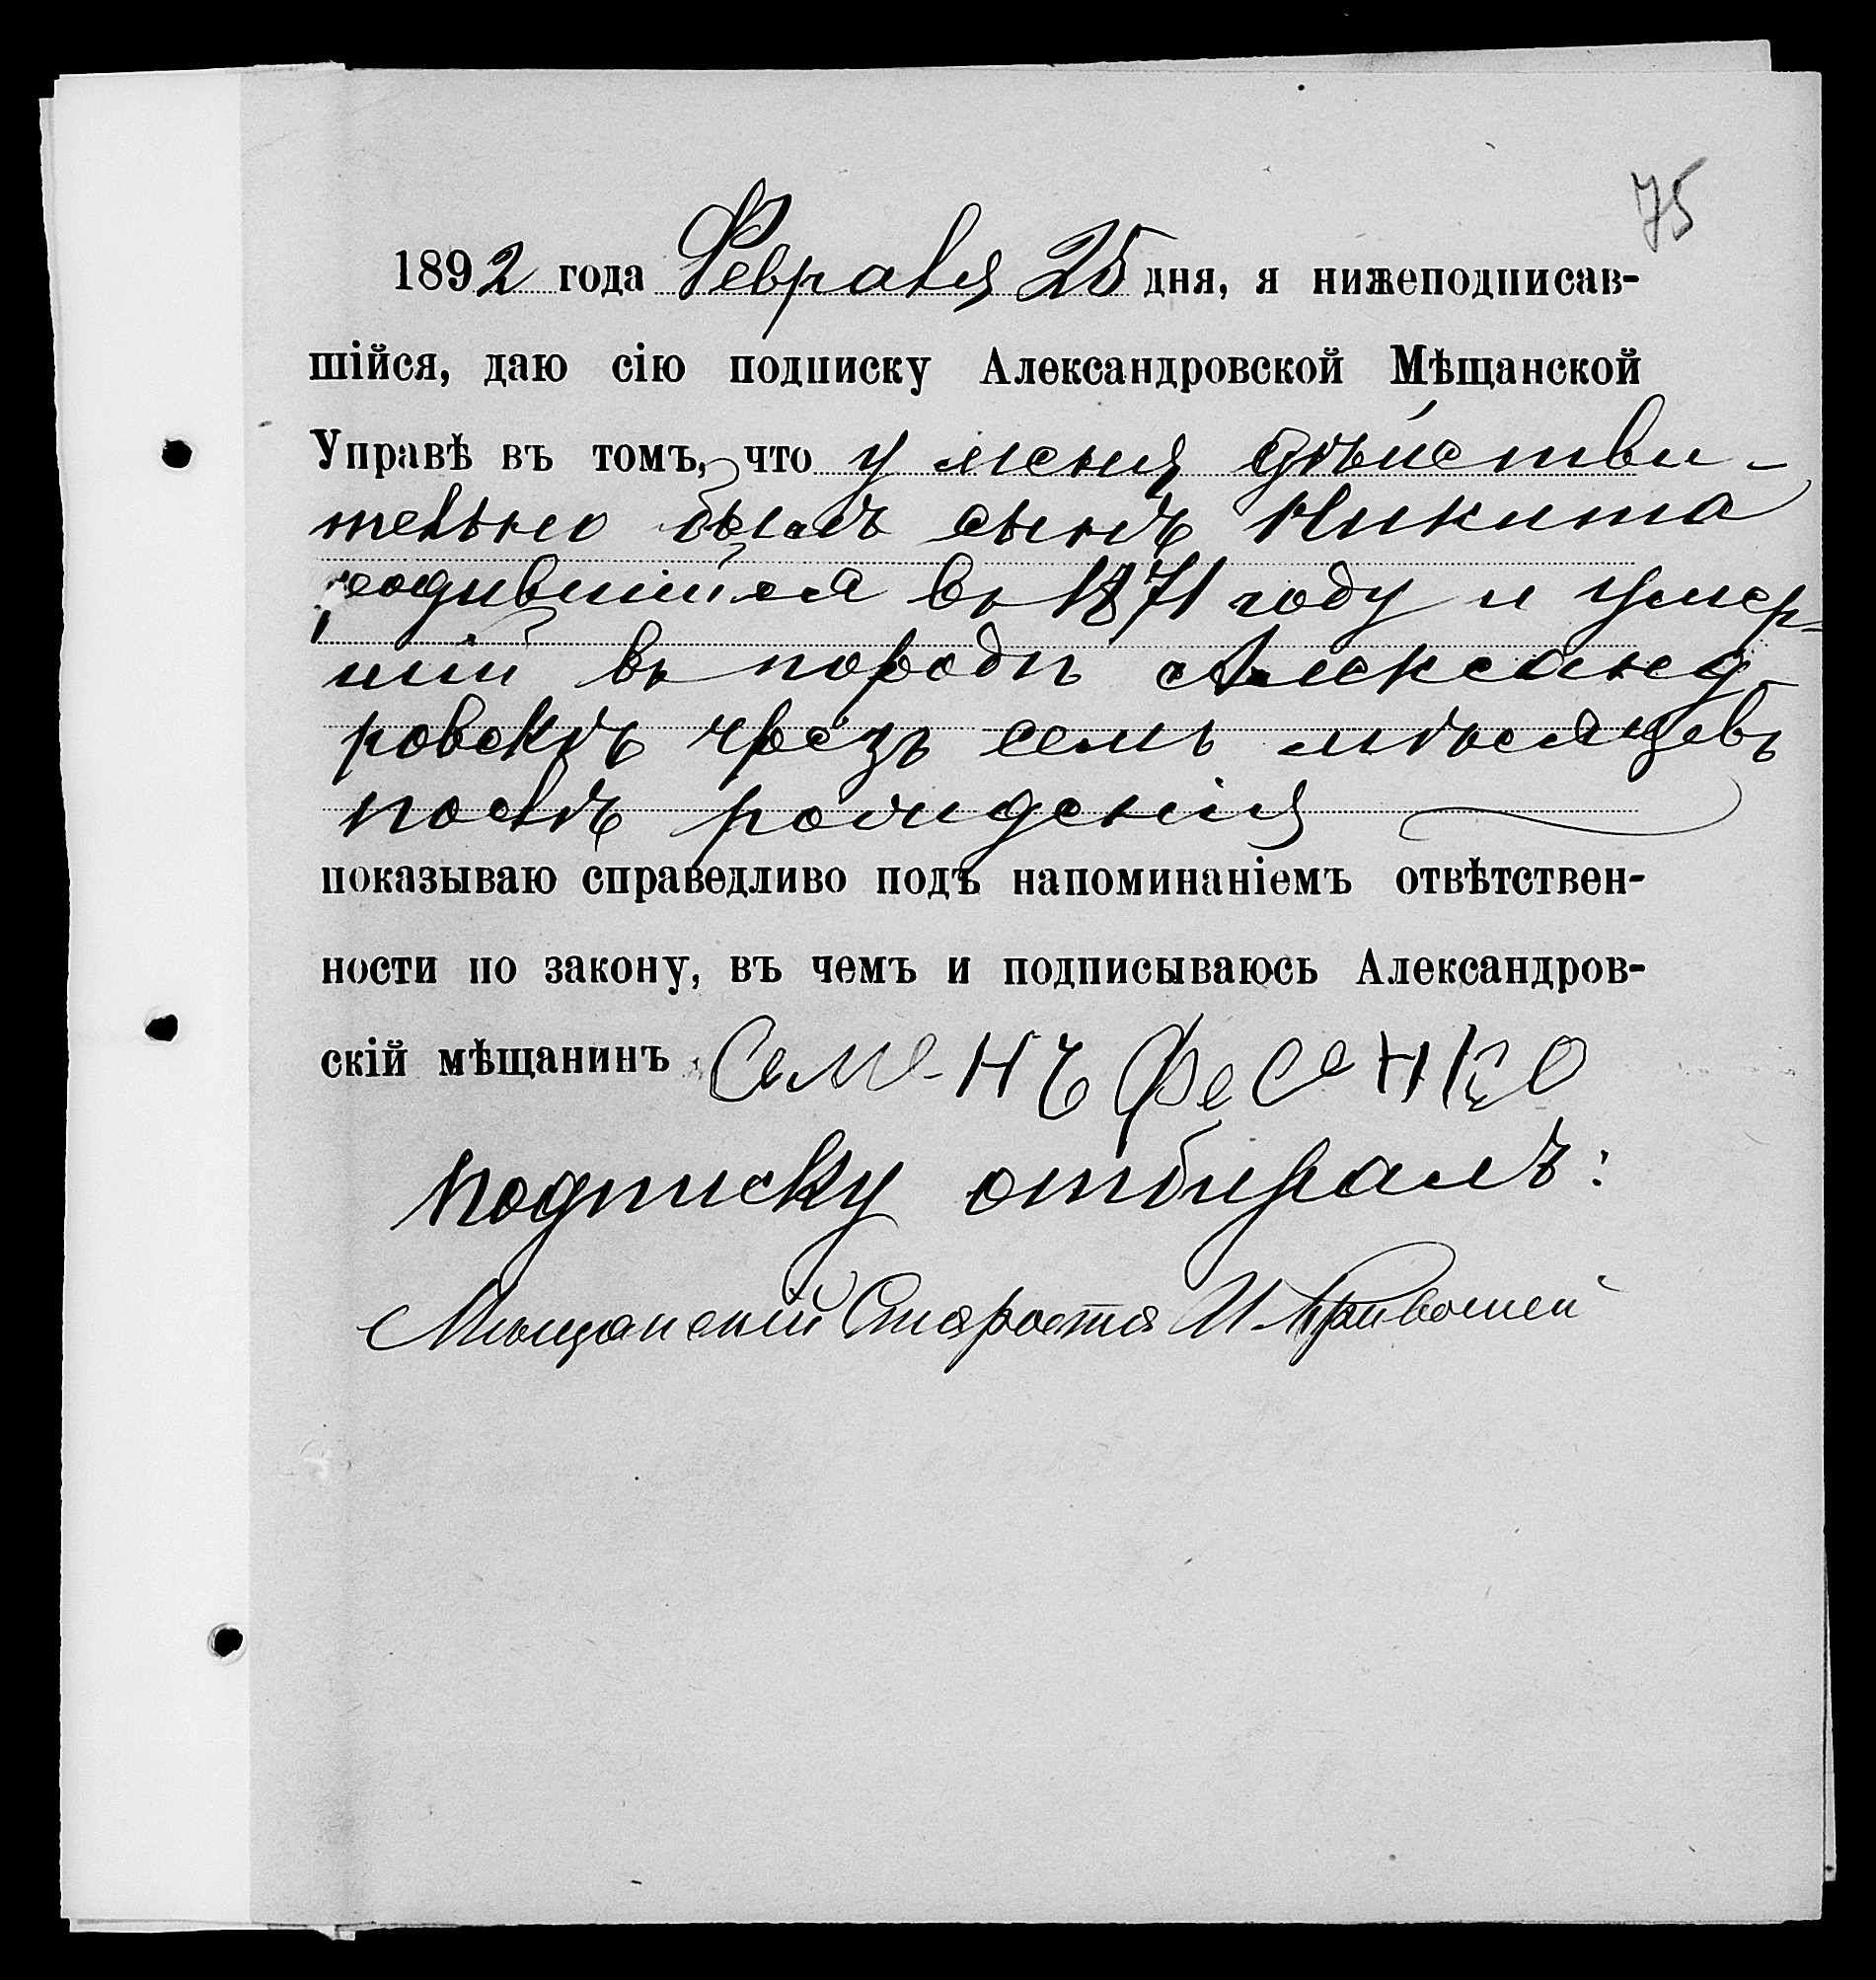 75
1892 года Февраля 25 дня, я нижеподписав-
шійся, даю сію подписку Александровской Мѣщанской
Управѣ въ томъ, что у меня дѣйстви-
тельно былъ сынъ Никита
родившійся въ 1871 году и умер-
шій въ городѣ Александ-
ровскѣ чрезъ семь мѣсяцевъ
послѣ рожденія
показываю справедливо подъ напоминаніемъ отвѣтствен-
ности по закону, въ чемъ и подписываюсь Александров-
скій мѣщанинъ Семенъ Фесенко
Подписку отбиралъ:
Мѣщанскій Староста И. Кривошей